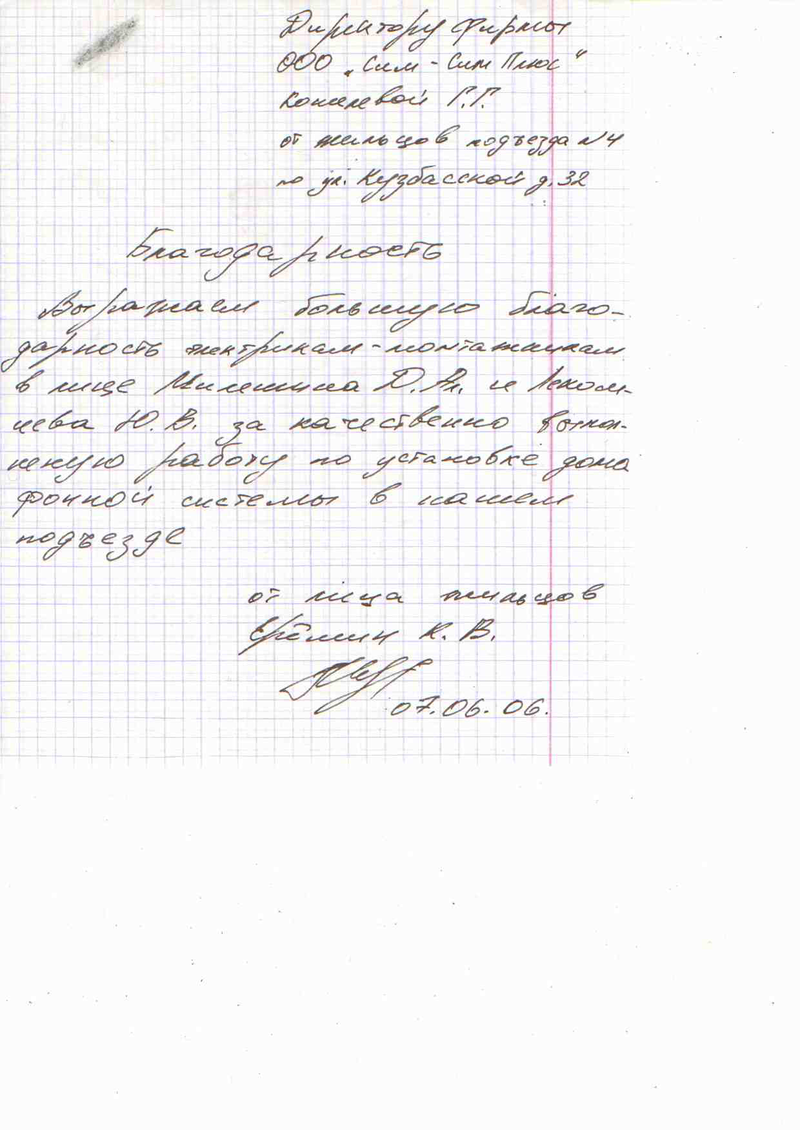 Директору фирмы
ООО „Сим - Сим Плюс“
Кошелевой Г.Г.
от жильцов подъезда №4
по ул. Кузбасской д. 32
Благодарность
Выражаем большую благо-
дарность электрикам-монтажникам
в лице Д. А. и Леком-
цева Ю. В. за качественно выпол-
неную работу по установке домо
фонной системы в нашем
подъезде
от лица жильцов
Ерёмин К. В.
07.06.06.